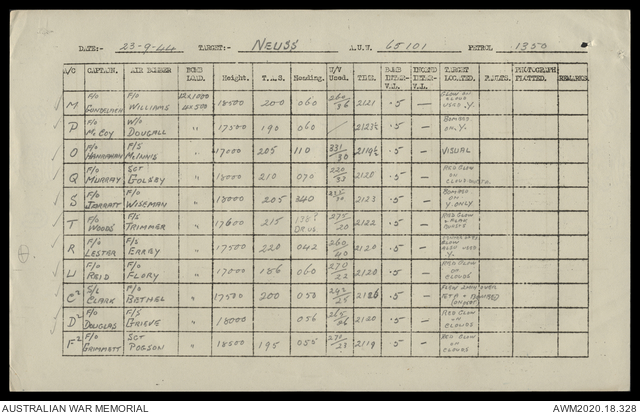 DATE:- 23-9-44 TARGET:- NEUSS A.U.W. 65101 PETROL 1350
A/C CAPTAIN. AIR BOMBER BOMB LOAD. Height. T.A.S. Heading. W/V Used. TIME. BOMB INTER-V.L. INCEND INTER-V.L. TARGET LOCATED. FAULTS. PHOTOGRAPH PLOTTED. REMARKS.
M F/O GUNDELACH F/O WILLIAMS 12x1000 4x500 18500 200 060 260/36 2121 .5 — GLOW ON CLOUD USED Y.
P F/O McCOY W/O DOUGALL " 17500 190 060 / 2123½ .5 — BOMBED ON Y.
O F/O HANRAHAN F/S McINNIS " 17000 205 110 331/30 2119½ .5 — VISUAL
Q F/O MURRAY SGT GOLSBY " 18000 210 070 220/33 2120 .5 — RED GLOW ON CLOUD
S F/O JARRATT F/O WISEMAN " 18000 205 340 2123 .5 — BOMBED Y ONLY
T F/O WOODS F/S TRIMMER " 17600 215 275/20 2122 .5 — RED GLOW & FLAK BURSTS
R F/O LESTER F/O ERREY " 17500 220 042 260/40 2120 .5 — GLOW ALSO USED Y.
U F/O REID F/O FLORY " 17000 186 060 270/22 2120 .5 — RED GLOW ON CLOUDS
C² S/L CLARK F/O BATHEL " 17500 200 050 242/25 2126 .5 — FLEW OVER
D² F/O DOUGLAS F/S GRIEVE " 18000 056 265/26 2120 .5 — RED GLOW ON CLOUDS
F² F/O GRIMMETT SGT POGSON " 18500 195 055 271/23 2119 .5 — RED GLOW ON CLOUDS
AUSTRALIAN WAR MEMORIAL AWM2020.18.328